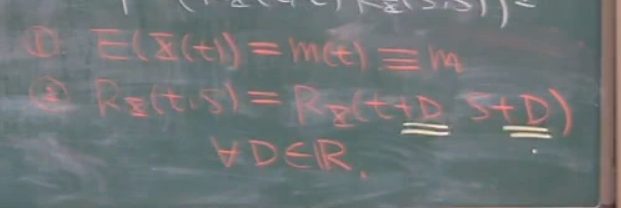 ① E(X(t)) = m(t) ≡ m
② R_X(t,s) = R_X(t+D, s+D)
∀D∈ℝ.